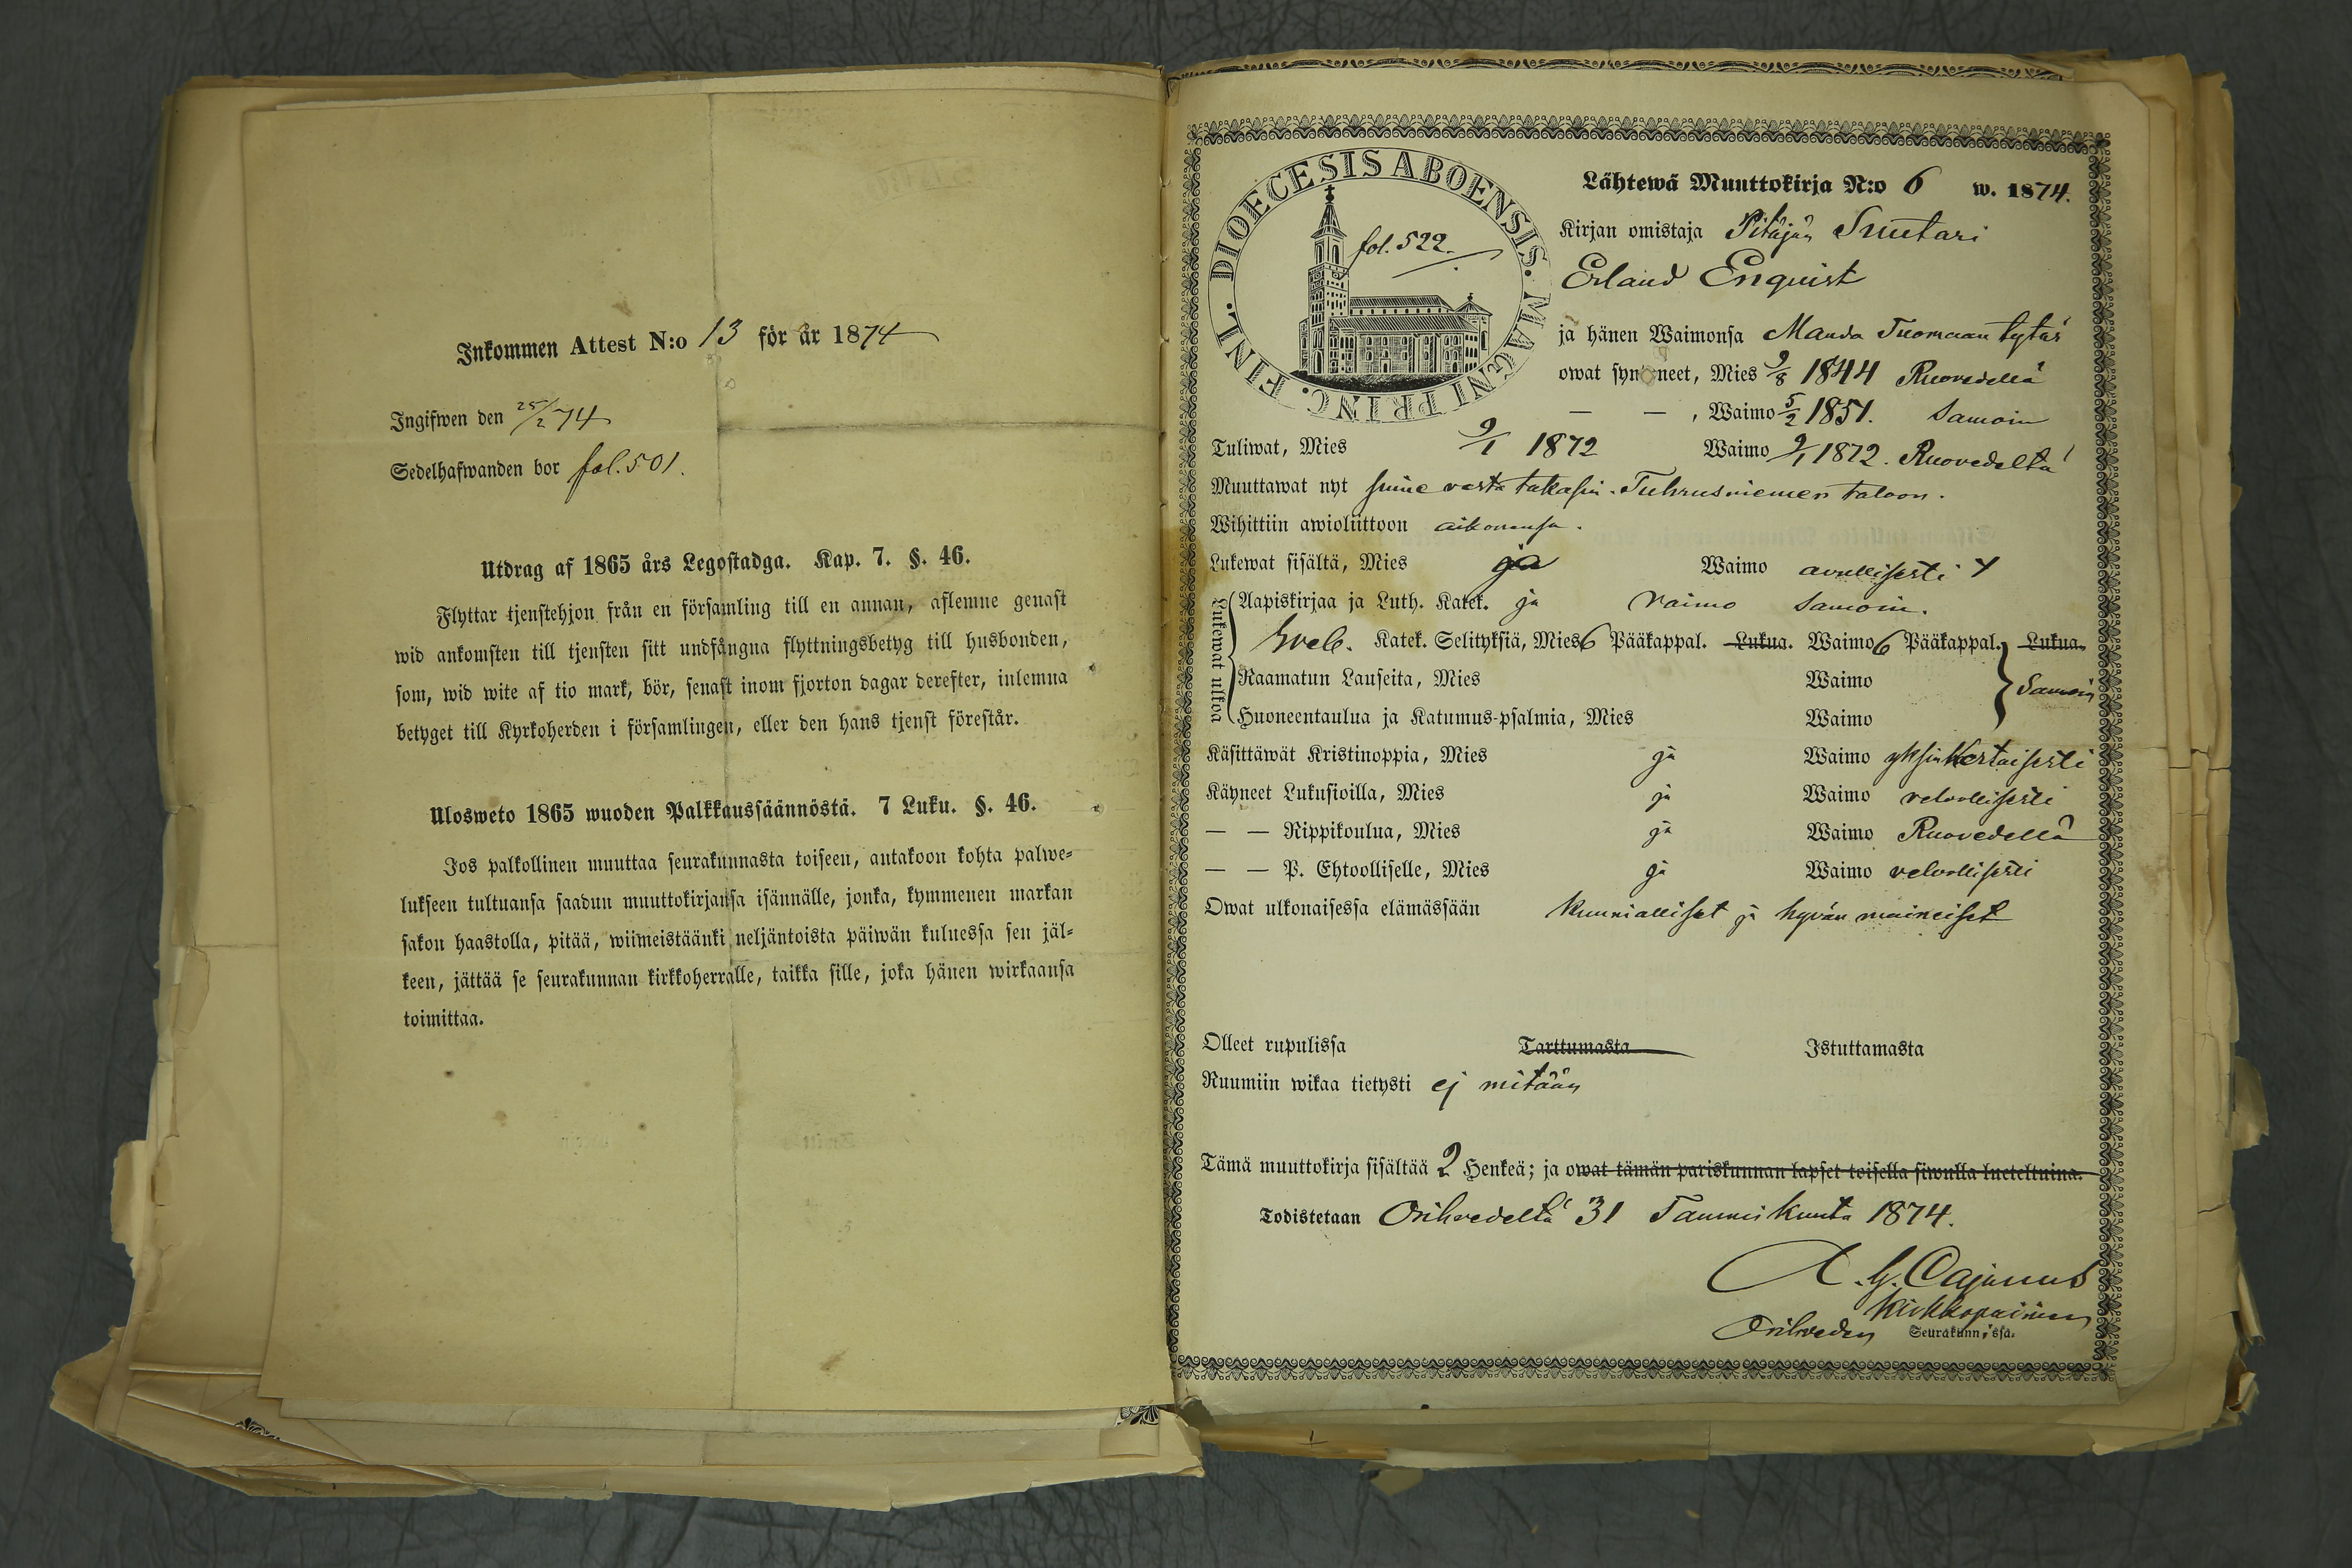 Inkommen Attest N:o 13 för år 1874
Ingifwen den 25/2 74
Sedelhafwanden bor fol. 501.
Utdrag af 1865 års Legostadga. Kap. 7. §. 46.
Flyttar tjenstehjon från en församling till en annan, aflemne genast
wid ankomsten till tjensten sitt undfångna flyttningsbetyg till husbonden,
som, wid wite af tio mark, bör, senast inom fjorton dagar derefter, inlemna
betyget till Kyrkoherden i församlingen, eller den hans tjenst förestår.
Ulosweto 1865 wuoden Palkkaussäännöstä. 7 Luku. §. 46.
Jos palkollinen muuttaa seurakunnasta toiseen, antakoon kohta palwe-
lukseen tultuansa saadun muuttokirjansa isännälle, jonka, kymmenen markan
sakon haastolla, pitää, wiimeistäänki neljäntoista päiwän kuluessa sen jäl-
keen, jättää se seurakunnan kirkkoherralle, taikka sille, joka hänen wirkaansa
toimittaa.
DIOECESIS ABOENSIS. MAGNI PRINC. FINL.
fol. 522.
Lähtewä Muuttokirja N:o 6 w. 1874.
Kirjan omistaja Pitäjän Suutari
Erland Enquist
ja hänen Waimonsa Manda Tuomaan tytär
owat syntyneet, Mies 9/8 1844 Ruovedellä
— — , Waimo 5/2 1851. Samoin
Tuliwat, Mies 9/1 1872 Waimo 9/1 1872. Ruovedeltä
Muuttawat nyt sinne takasin. Tuhrusniemen taloon.
Wihittiin awioliittoon aikonansa.
Lukewat sisältä, Mies ja Waimo avullisesti
Lukewat ulkoa
Aapiskirjaa ja Luth. Katek. ja vaimo Samoin.
Sveb. Katek. Selityksiä, Mies 6 Pääkappal. Lukua. Waimo 6 Pääkappal. Lukua.
Raamatun Lauseita, Mies Waimo Samoin
Huoneentaulua ja Katumus-psalmia, Mies Waimo
Käsittäwät Kristinoppia, Mies ja Waimo yksinkertaisesti
Käyneet Lukusioilla, Mies ja Waimo velvollisesti
— — Rippikoulua, Mies ja Waimo Ruovedellä
— — P. Ehtoolliselle, Mies ja Waimo velvollisesti
Owat ulkonaisessa elämässään kunnialliset ja hyvän maineiset
Olleet rupulissa Tarttumasta Istuttamasta
Ruumiin wikaa tietysti ej mitään
Tämä muuttokirja sisältää 2 Henkeä; ja owat tämän pariskunnan lapset toisella siwulla lueteltuina.
Todistetaan Orihvedeltä 31 Tammikuuta 1874.
A. G. Cajanus
Kirkkopainen
Orihveden Seurakunn. ssa.